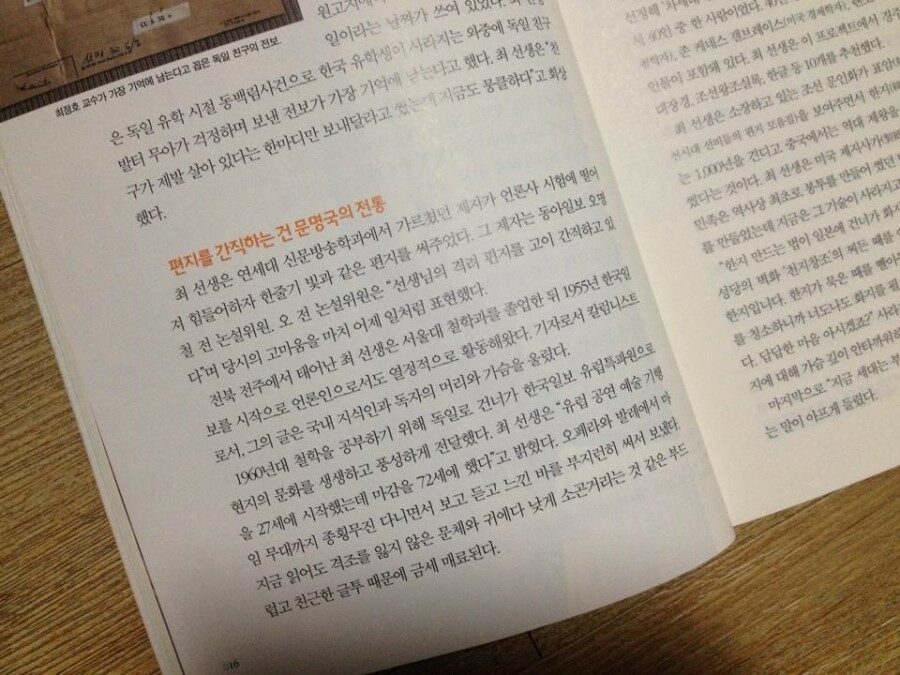 63. 6. 30
최정호 교수가 가장 기억에 남는다고 꼽은 독일 친구의 전보
일이라는 날짜가 쓰여 있었다. 최
은 독일 유학 시절 동백림사건으로 한국 유학생이 사라지는 와중에 독일 친구
발터 무아가 걱정하며 보낸 전보가 가장 기억에 남는다고 했다. 최 선생은 “친
구가 제발 살아 있다는 한마디만 보내달라고 썼는데 지금도 뭉클하다”고 회상
했다.
편지를 간직하는 건 문명국의 전통
최 선생은 연세대 신문방송학과에서 가르쳤던 제자가 언론사 시험에 떨어
져 힘들어하자 한줄기 빛과 같은 편지를 써주었다. 그 제자는 동아일보 오명
철 전 논설위원. 오 전 논설위원은 “선생님의 격려 편지를 고이 간직하고 있
다”며 당시의 고마움을 마치 어제 일처럼 표현했다.
전북 전주에서 태어난 최 선생은 서울대 철학과를 졸업한 뒤 1955년 한국일
보를 시작으로 언론인으로서도 열정적으로 활동해왔다. 기자로서 칼럼니스트
로서, 그의 글은 국내 지식인과 독자의 머리와 가슴을 울렸다.
1960년대 철학을 공부하기 위해 독일로 건너가 한국일보 유럽특파원으로
현지의 문화를 생생하고 풍성하게 전달했다. 최 선생은 “유럽 공연 예술 기행
을 27세에 시작했는데 마감을 72세에 했다”고 밝혔다. 오페라와 발레에서 마
임 무대까지 종횡무진 다니면서 보고 듣고 느낀 바를 부지런히 써서 보냈다.
지금 읽어도 격조를 잃지 않은 문체와 귀에다 낮게 소곤거리는 것 같은 부드
럽고 친근한 글투 때문에 금세 매료된다.
016
서 40인 중 한 사람이었다. 40인
철학자), 존 케네스 갤브레이스(미국 경제학자), 헨
인물이 포함돼 있다. 최 선생은 이 프로젝트에서 경주
대상경, 조선왕조실록, 한글 등 10개를 추천했다.
최 선생은 소장하고 있는 조선 문인화가 표암
선시대 선비들의 편지 모음집)을 보여주면서 한지
는 1,000년을 견디고 중국에서는 역대 제왕을
썼다는 것이다. 최 선생은 미국 제지사가
민족은 역사상 최초로 봉투를 만들어 썼던
를 만들었는데 지금은 그 기술이 사라지고
“한지 만드는 법이 일본에 건너가 화지
성당의 벽화 ‘천지창조’의 찌든 때를
한지입니다. 한지가 묵은 때를 빨아
를 청소하니까 너도나도 화지를 찾
다. 답답한 마음 아시겠죠?” 사라
지에 대해 가슴 깊이 안타까워
마지막으로 “지금 세대는 부
는 말이 아프게 들렸다.